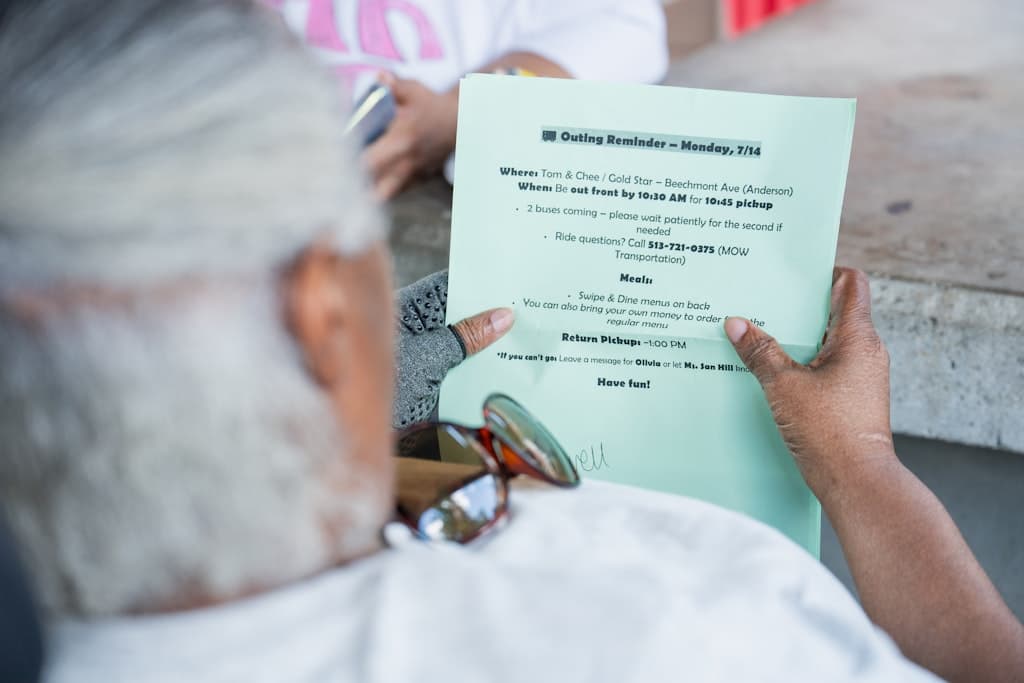 Outing Reminder – Monday, 7/14
Where: Tom & Chee / Gold Star – Beechmont Ave (Anderson)
When: Be out front by 10:30 AM for 10:45 pickup
• 2 buses coming – please wait patiently for the second if
needed
• Ride questions? Call 513-721-0375 (MOW
Transportation)
Meals:
• Swipe & Dine menus on back
• You can also bring your own money to order the
regular menu
Return Pickup: ~1:00 PM
*If you can't go: Leave a message for Olivia or let Ms. San Hill
Have fun!